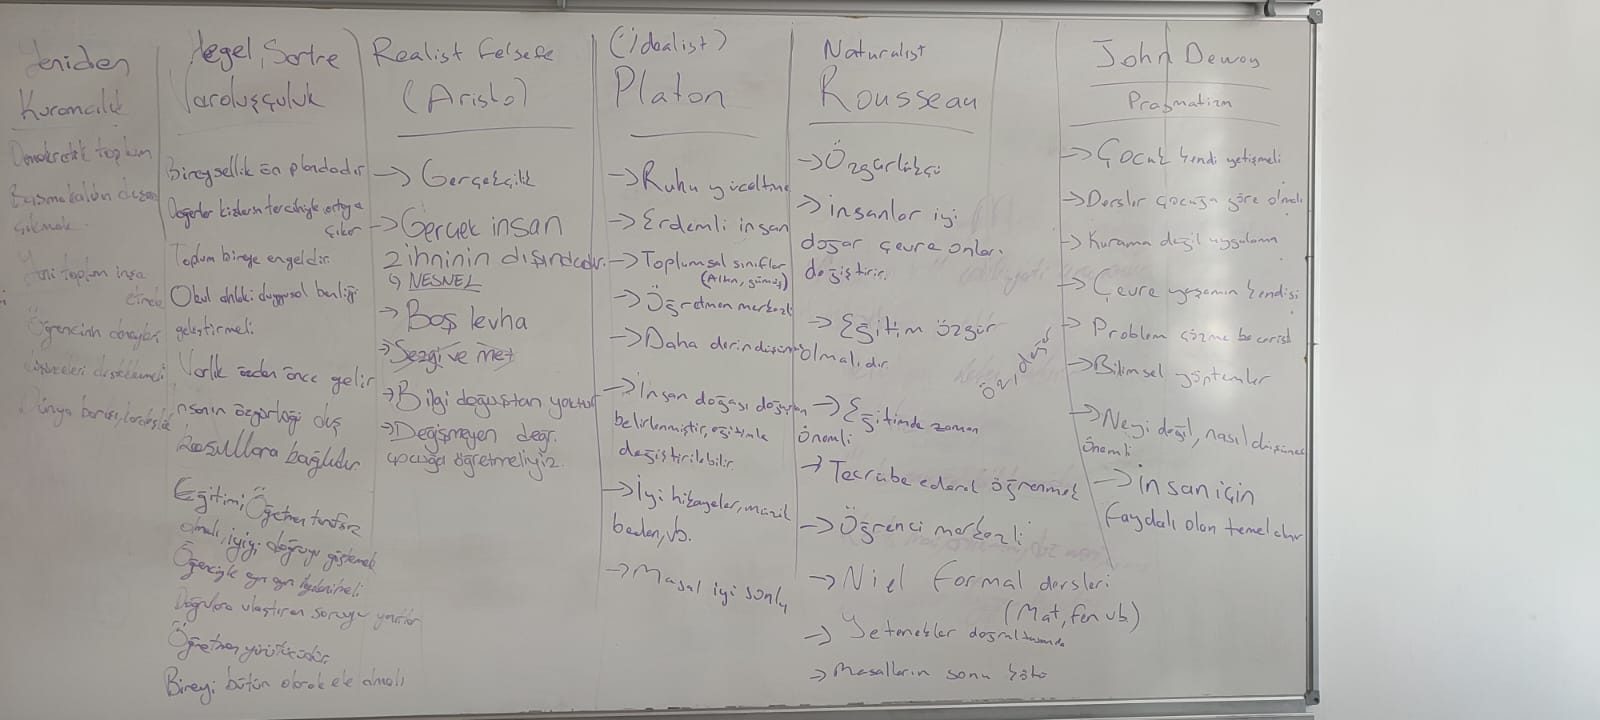 Yeniden
Kuramcılık
Demokratik toplum
çıkmak.
Yeni toplum inşa
etmek
Öğrencinin
Dünya barışı, kardeşlik
Hegel, Sartre
Varoluşçuluk
Bireysellik ön plandadır
Değerler kişilerin tercihiyle ortaya
çıkar
Toplum bireye engeldir.
Okul ahlaki duygusal benliği
geliştirmeli
Varlık özden önce gelir
İnsanın özgürlüğü dış
koşullara bağlıdır
Eğitimi, Öğretmen tarafsız
olmalı, iyiyi doğruyu göstermek
Öğrenciyle ayrı ayrı ilgilenmeli
Doğrulara ulaştıran soruyu
Öğretmen yürütücüdür.
Bireyi bütün olarak ele almalı
Realist Felsefe
(Aristo)
→ Gerçekçilik
→ Gerçek insan
zihninin dışındadır.
↳ NESNEL
→ Boş levha
→ Sezgi ve met
→ Bilgi doğuştan yoktur
→ Değişmeyen değr.
çocuğa öğretmeliyiz.
(İdealist)
Platon
→ Ruhu yüceltme
→ Erdemli insan
→ Toplumsal sınıflar
(Altın, gümüş)
→ Öğretmen merkezli
→ Daha derin düşünme
→ İnsan doğası doğuştan
belirlenmiştir, eğitimle
değiştirilebilir.
→ İyi hikayeler, müzik
beden, vb.
→ Masal iyi sonlu
Naturalist
Rousseau
→ Özgürlükçü
→ İnsanlar iyi
doğar çevre onları
değiştirir.
→ Eğitim özgür
olmalıdır
→ Eğitimde zaman
önemli
→ Tecrübe ederek öğrenmek
→ Öğrenci merkezli
→ Niel formal dersleri
(Mat, fen vb.)
→ Yetenekler doğrultusunda
→ Masalların sonu kötü
John Dewey
Pragmatizm
→ Çocuk kendi yetişmeli
→ Dersler çocuğa göre olmalı
→ Kurama değil uygulama
→ Çevre yaşamın kendisi
→ Problem çözme becerisi
→ Bilimsel yöntemler
→ Neyi değil, nasıl düşünce
önemli
→ İnsan için
faydalı olan temel alır